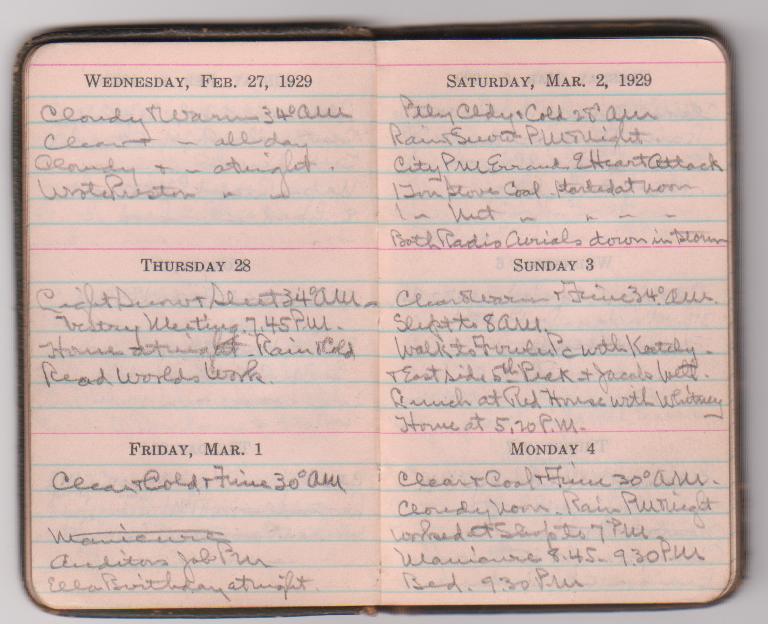 WEDNESDAY, FEB. 27, 1929
Cloudy & Warm 34° AM
Clear + " all day
Cloudy + " at night.
Wrote Preston " "
THURSDAY 28
Light Snow & Sleet 34° AM
Vestry Meeting. 7.45 P.M.
Home at night. Rain & Cold
Read Worlds Work.
FRIDAY, MAR. 1
Clear & Cold & Fine 30° AM
Manicure
Auditors Job PM
Ella Birthday at night.
SATURDAY, MAR. 2, 1929
Ptly Cldy & Cold 28° AM
Rain & Snow PM & Night
City PM Errands Heart Attack
1 Ton Stove Coal. Started at noon
1 " Nut " " " "
Both Radio Aerials down in storm
SUNDAY 3
Clear & Warm & Fine 34° AM.
Slept to 8 AM.
Walk to with
& East side 5th Peak & Jacobs
Lunch at Red House with Whitney
Home at 5.20 P.M.
MONDAY 4
Clear & Cool & Fine 30° AM.
Cloudy Noon. Rain PM Night
Worked at Shop to 7 PM.
Manicure 8.45 - 9.30 PM
Bed. 9.30 PM